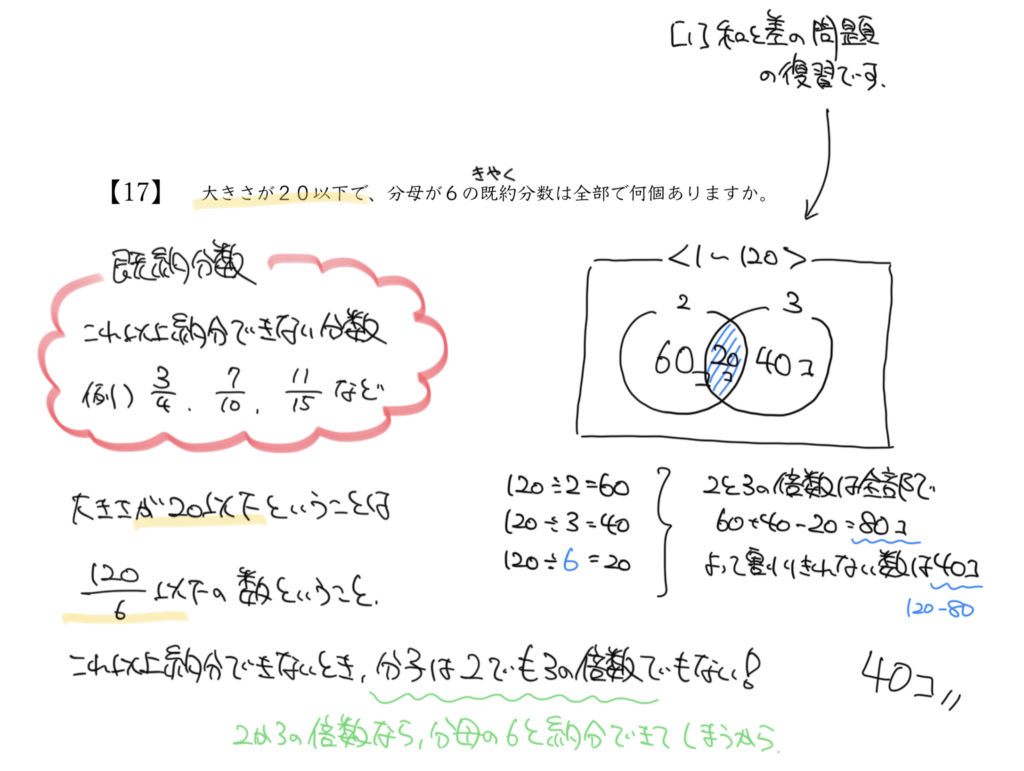 [1] 和と差の問題
の復習です.
きやく
【17】 大きさが20以下で、分母が6の既約分数は全部で何個ありますか。
既約分数
これ以上約分できない分数
例) 3/4, 7/10, 11/15 など
大きさが20以下ということは
120/6 以下の数ということ.
<1~120>
2 3
60コ 20コ 40コ
120÷2=60
120÷3=40
120÷6=20
2と3の倍数は全部で
60+40-20=80コ
よって割りきれない数は40コ
120-80
これ以上約分できないとき, 分子は2でも3の倍数でもない!
2か3の倍数なら, 分母の6と約分できてしまうから.
40コ